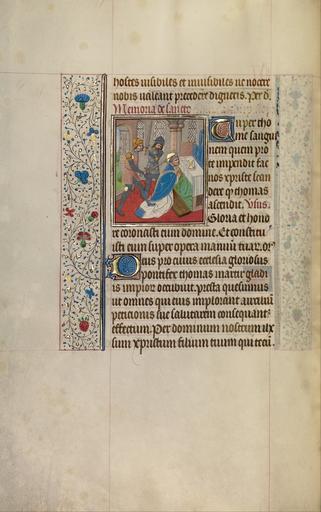 hostes uisibiles et inuisibiles ne nocere
nobis ualeant precedere digneris. Per d.
Memoria de sancto
Tu per tho
me sangui
nem quem pro
te impendit fac
nos xpriste scan
dere quo thomas
ascendit. Vsus.
Gloria et hono
re coronasti eum domine. Et constitui
isti eum super opera manuum tuar. or͛
Deus pro cuius ecclesia gloriosus
pontifex thomas martir gladi
is impior occubuit. presta quesumus
ut omnes qui eius implorant auxilium
peticionis sue salutarem consequant
effectum. Per dominum nostrum ihx
sum xpristum filium tuum qui tecū.